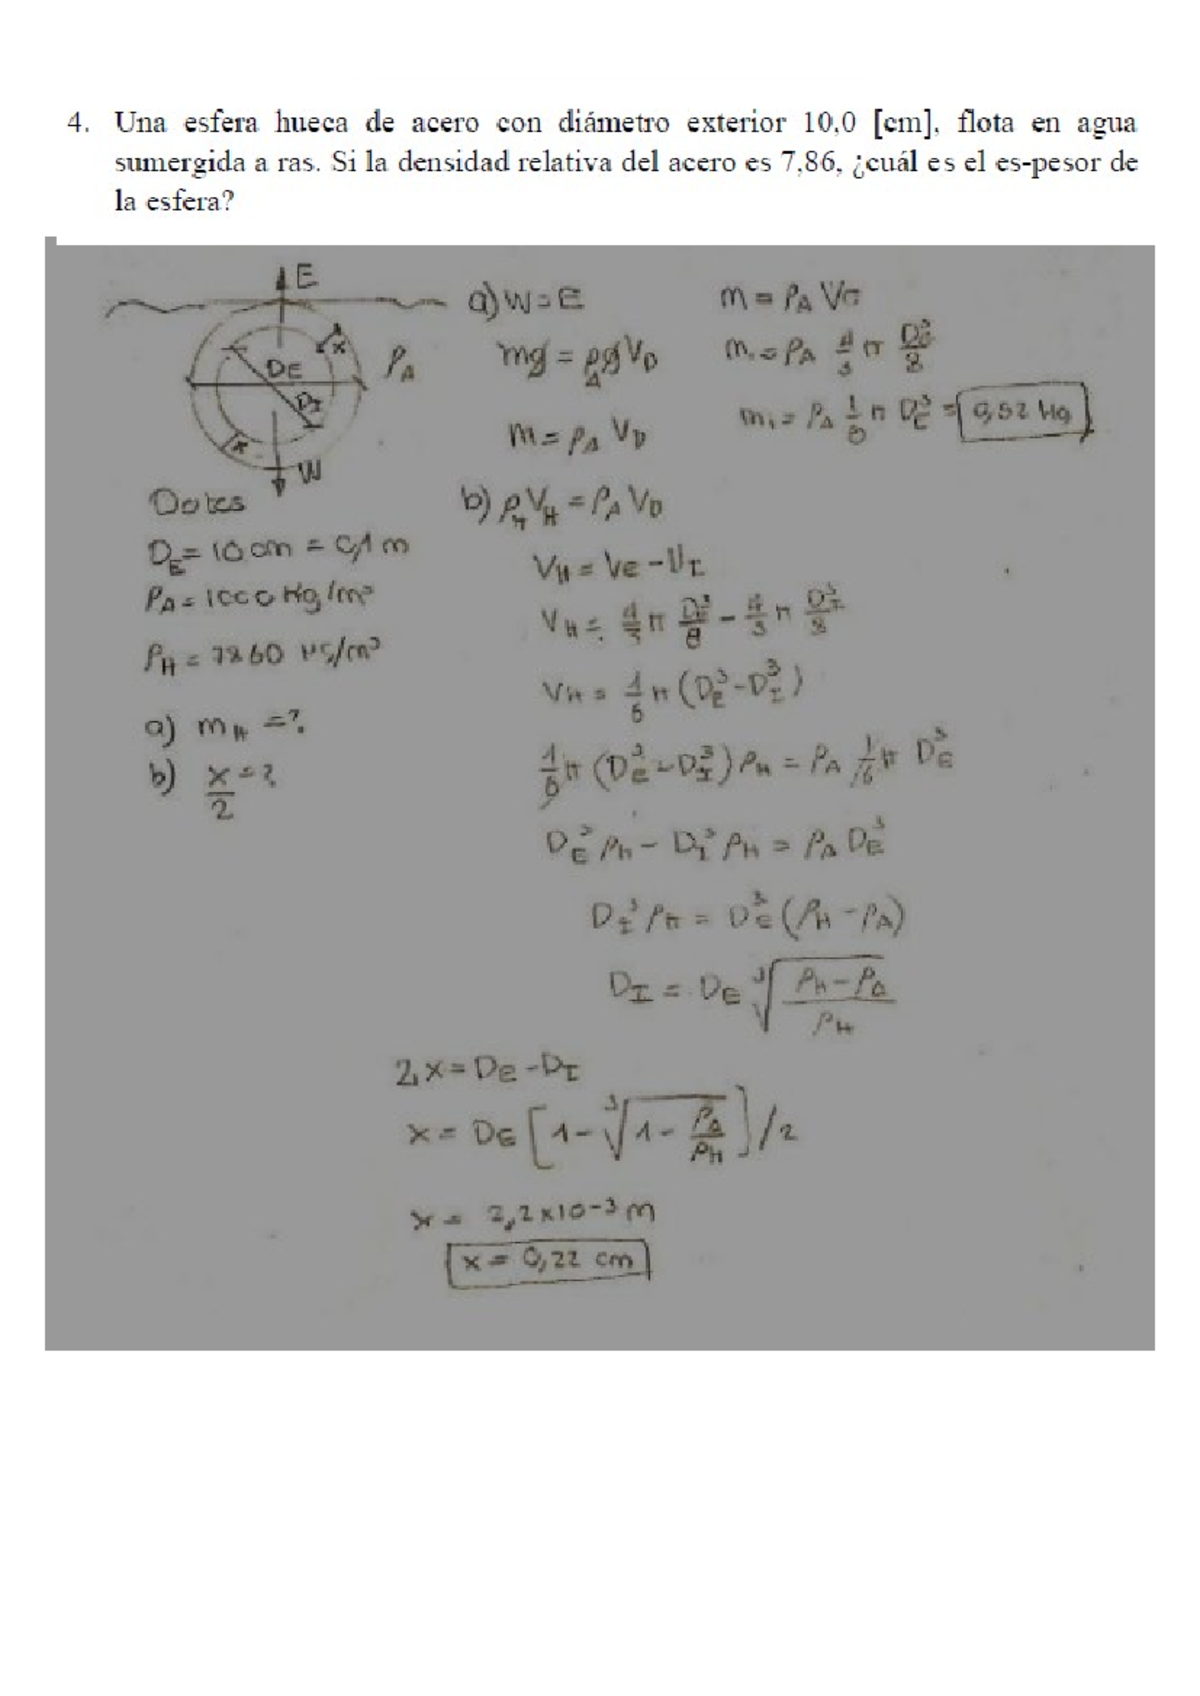 4. Una esfera hueca de acero con diámetro exterior 10,0 [cm], flota en agua
sumergida a ras. Si la densidad relativa del acero es 7,86, ¿cuál es el es-pesor de
la esfera?
E
x
D_E
D_I
ρ_A
x
W
Datos
D_E = 10 cm = 0,1 m
ρ_A = 1000 Kg/m³
ρ_H = 7860 Kg/m³
a) m_H = ?
b) x/2 = ?
a) W = E
mg = ρ_A g V_D
m = ρ_A V_D
m = ρ_A V_D
m = ρ_A 4/3 π D_E³/8
m = ρ_A 1/6 π D_E³ = 0,52 Kg
b) ρ_H V_H = ρ_A V_D
V_H = V_E - V_I
V_H = 4/3 π D_E³/8 - 4/3 π D_I³/8
V_H = 1/6 π (D_E³ - D_I³)
1/6 π (D_E³ - D_I³) ρ_H = ρ_A 1/6 π D_E³
D_E³ ρ_H - D_I³ ρ_H = ρ_A D_E³
D_I³ ρ_H = D_E³ (ρ_H - ρ_A)
D_I = D_E ∛((ρ_H - ρ_A)/ρ_H)
2x = D_E - D_I
x = D_E [1 - ∛(1 - ρ_A/ρ_H)]/2
x = 2,2x10-3 m
x = 0,22 cm